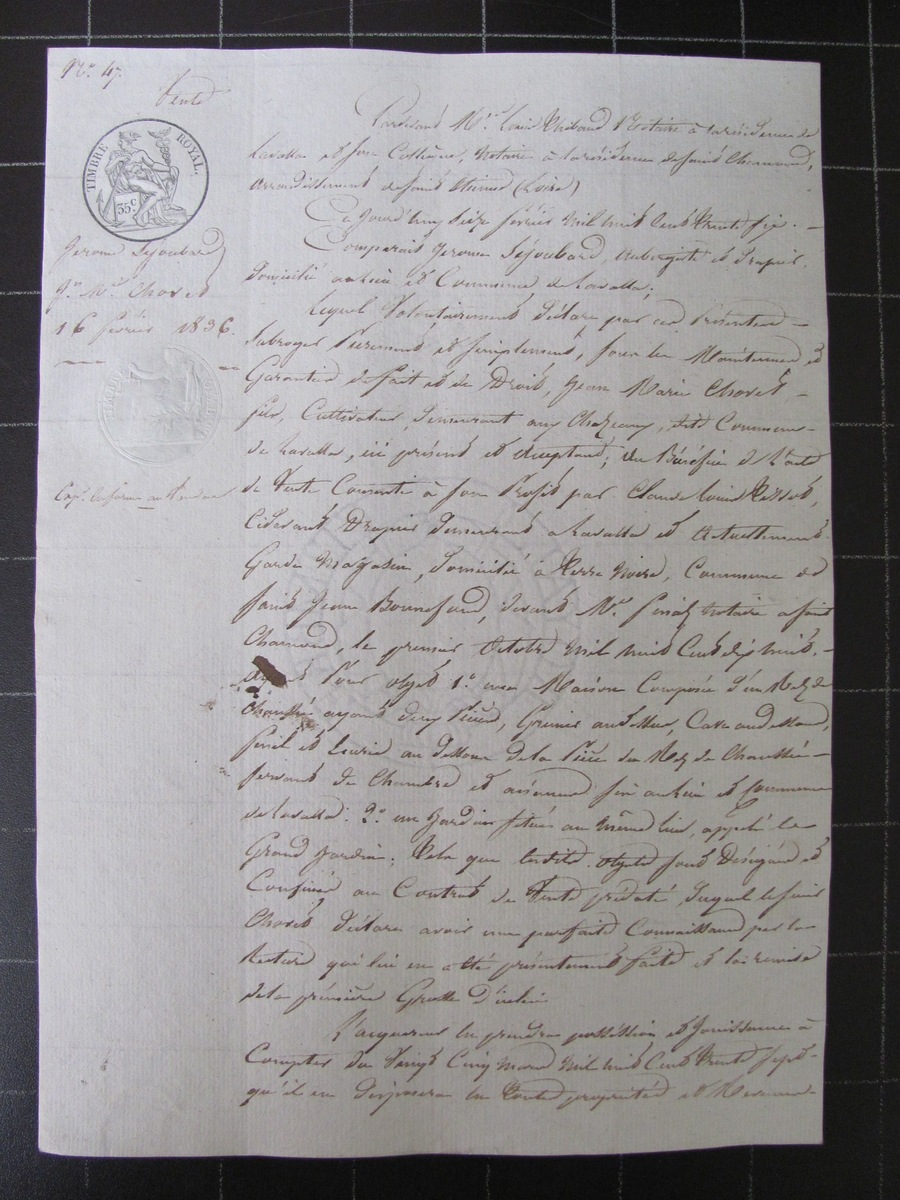 N.° 47.
Vente
TIMBRE ROYAL.
35 c
Jerome Séjoubard
à M.r Choret
16 février 1836.
Cop. conforme au
Pardevant M.e Louis Thibaud Notaire à la résidence de
Lavalla et son Collègue, Notaire à la résidence de saint Chamond,
arrondissement de saint Etienne (Loire)
Ce jourd'huy seize février mil huit cent trente six.
Comparait Jerome Séjoubard, aubergiste et drapier,
domicilié au lieu et Commune de Lavalla;
Lequel Volontairement déclare par ces Présentes
Subroger Purement et simplement, sous les Maintenues et
Garanties de fait et de Droit, Jean Marie Choret
fils, Cultivateur, demeurant aux Chazeaux, dite Commune
de Lavalla, ici présent et acceptant; au Bénéfice de l'acte
de Vente Consenti à son Profit par Claude Louis
Cidevant Drapier demeurant à Lavalla et actuellement
Garde Magasin, domicilié à Terre Noire, Commune de
saint Jean Bonnefond, devant M.e notaire à saint
Chamond, le premier octobre mil huit cent dix huit,
ayant Pour objet 1.° une Maison Composée d'un Rez de
chaussée ayant deux Pièces, Grenier au dessus, Cave au dessous,
fenil et Ecurie au dessous de la Pièce du Rez de Chaussée
servant de Chambre et aisances sis au lieu et Commune
de Lavalla. 2.° un Jardin situé au même lieu, appelé le
Grand Jardin; Tels que lesdits objets sont Désignés et
Confinés au Contrat de Vente prédaté, duquel le sieur
Choret déclare avoir une parfaite Connaissance par la
Lecture qui lui en a été présentement faite et la remise
de la première Grosse d'icelui.
L'acquereur en prendra possession et Jouissance à
Compter du Vingt Cinq Mars Mil huit Cent Trente Sept
qu'il en disposera en toute propriété et